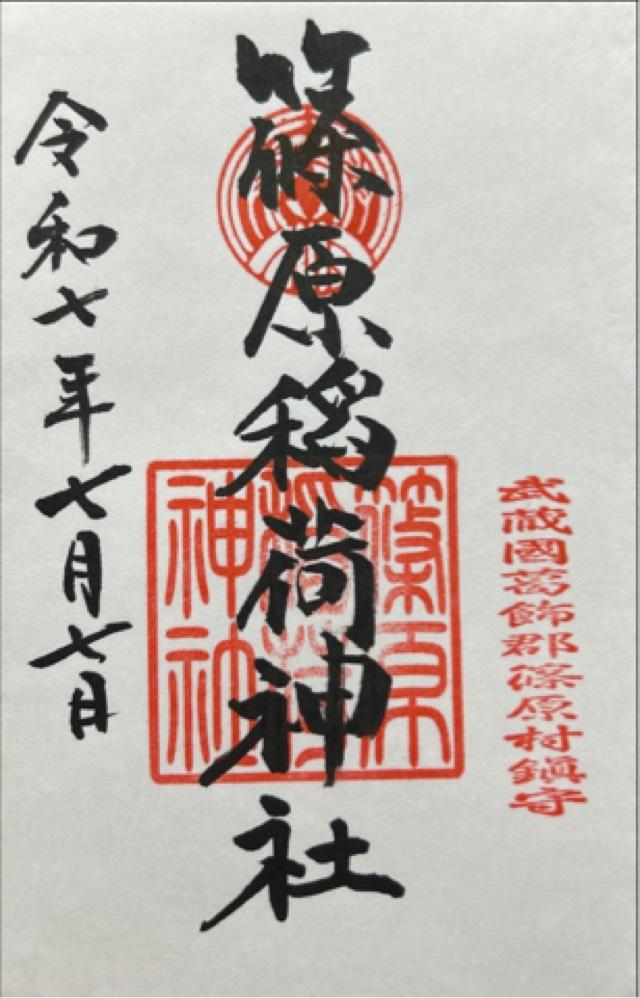 武蔵國葛飾郡篠原村鎮守
篠原稲荷神社
篠原稲荷神社
令和七年七月七日